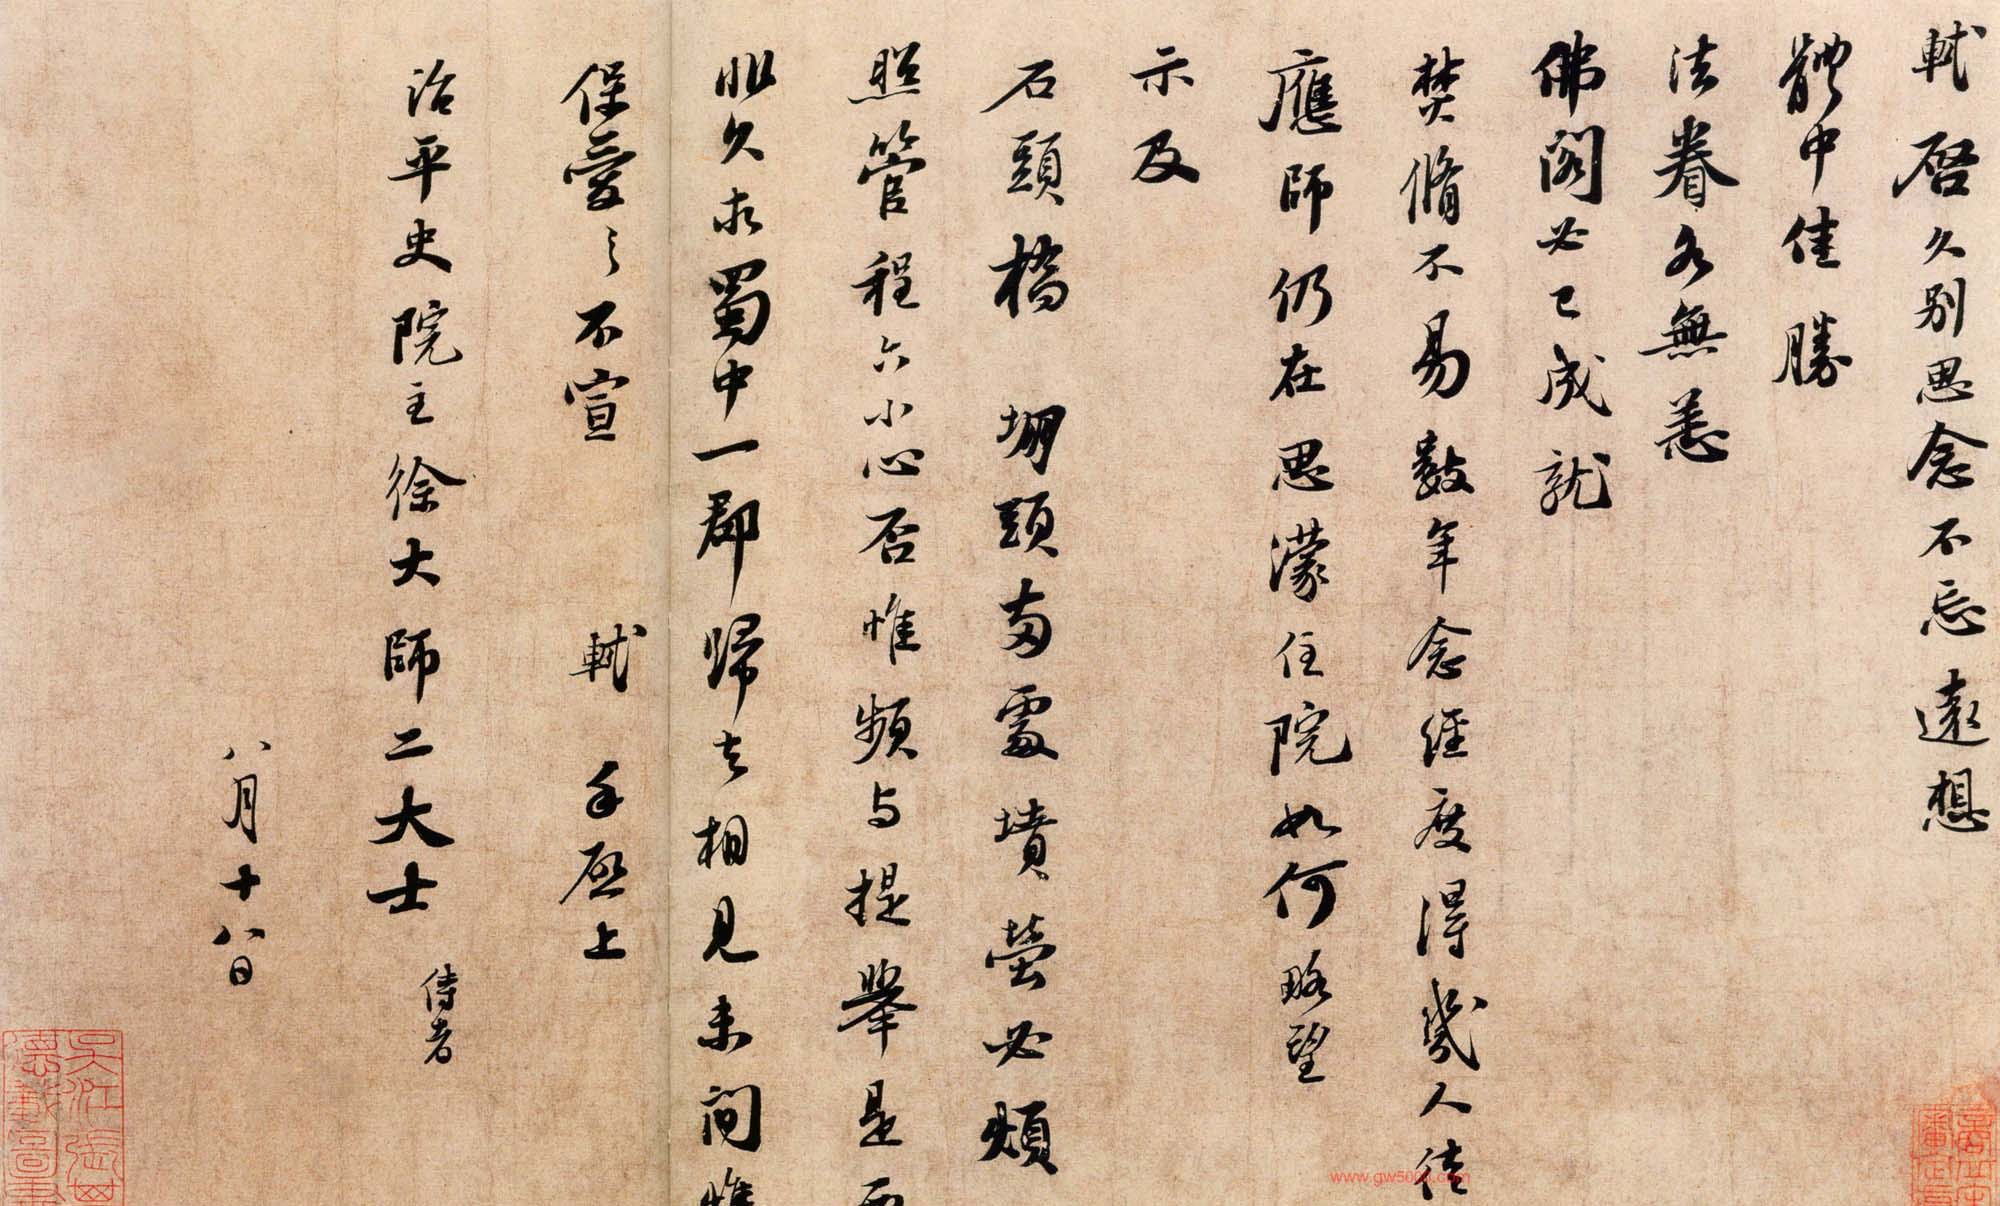 軾啓久別思念不忘遠想
體中佳勝
法眷各無恙
佛閣必已成就
焚脩不易數年念經度得幾人徒
應師仍在思濛住院如何略望
示及
石頭橋 堋頭兩處墳塋必煩
照管程六小心否惟頻与提舉是要
非久求蜀中一郡歸去相見未間惟
保愛之不宣 軾手啓上
治平史院主徐大師二大士 侍者
八月十八日
www.gw5000.com